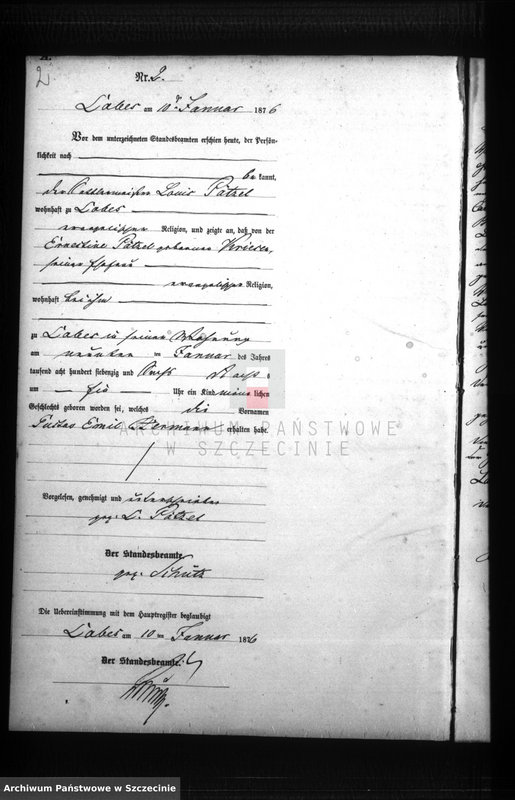 2
Nr. 2.
Labes am 10ten Januar 1876
Vor dem unterzeichneten Standesbeamten erschien heute, der Persön-
lichkeit nach
bekannt,
der Louis Pätzel
wohnhaft zu Labes
evangelischer Religion, und zeigte an, daß von der
Ernestine Pätzel geborenen
seiner Ehefrau
evangelischer Religion,
wohnhaft bei ihm
zu Labes in seiner Wohnung
am neunten ten Januar des Jahres
tausend acht hundert siebenzig und sechs Nachts
um Uhr ein Kind männlichen
Geschlechts geboren worden sei, welches die Vornamen
Gustav Emil Hermann erhalten habe.
ARCHIWUM PAŃSTWOWE
W SZCZECINIE
Vorgelesen, genehmigt und unterschrieben
gez. L. Pätzel
Der Standesbeamte.
gez. Schütz
Die Uebereinstimmung mit dem Hauptregister beglaubigt
Labes am 10ten Januar 1876
Der Standesbeamte.
Archiwum Państwowe w Szczecinie